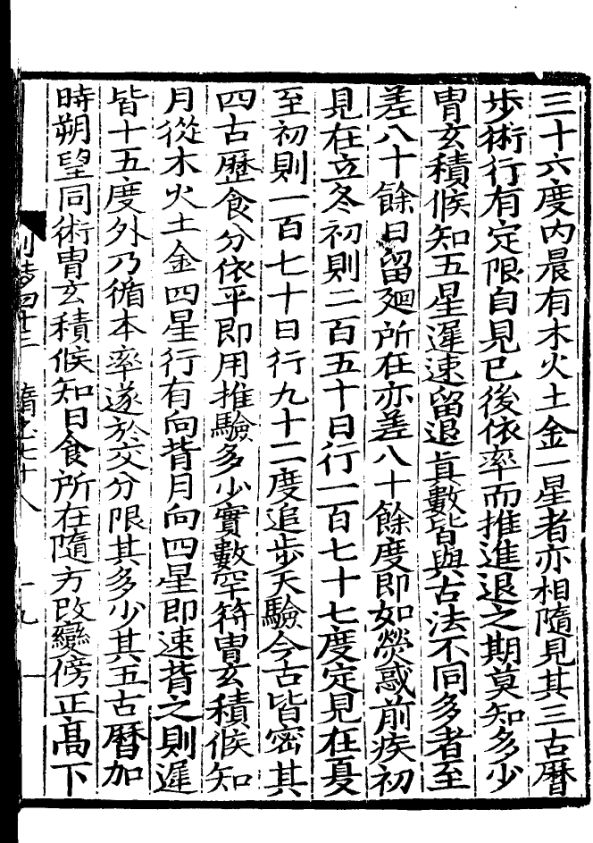 三十六度內晨有木火土金一星者亦相隨見其三古曆
步術行有定限自見已後依率而推進退之期莫知多少
胄玄積候知五星遲速留退真數皆與古法不同多者至
差八十餘日留廻所在亦差八十餘度即如熒惑前疾初
見在立冬初則二百五十日行一百七十七度定見在夏
至初則一百七十日行九十二度追步天驗今古皆密其
四古曆食分依平即用推驗多少實數罕符胄玄積候知
月從木火土金四星行有向背月向四星即速背之則遲
皆十五度外乃循本率遂於交分限其多少其五古曆加
時朔望同術胄玄積候知日食所在隨方改變傍正高下
列傳四十三 隋書七十八 十九